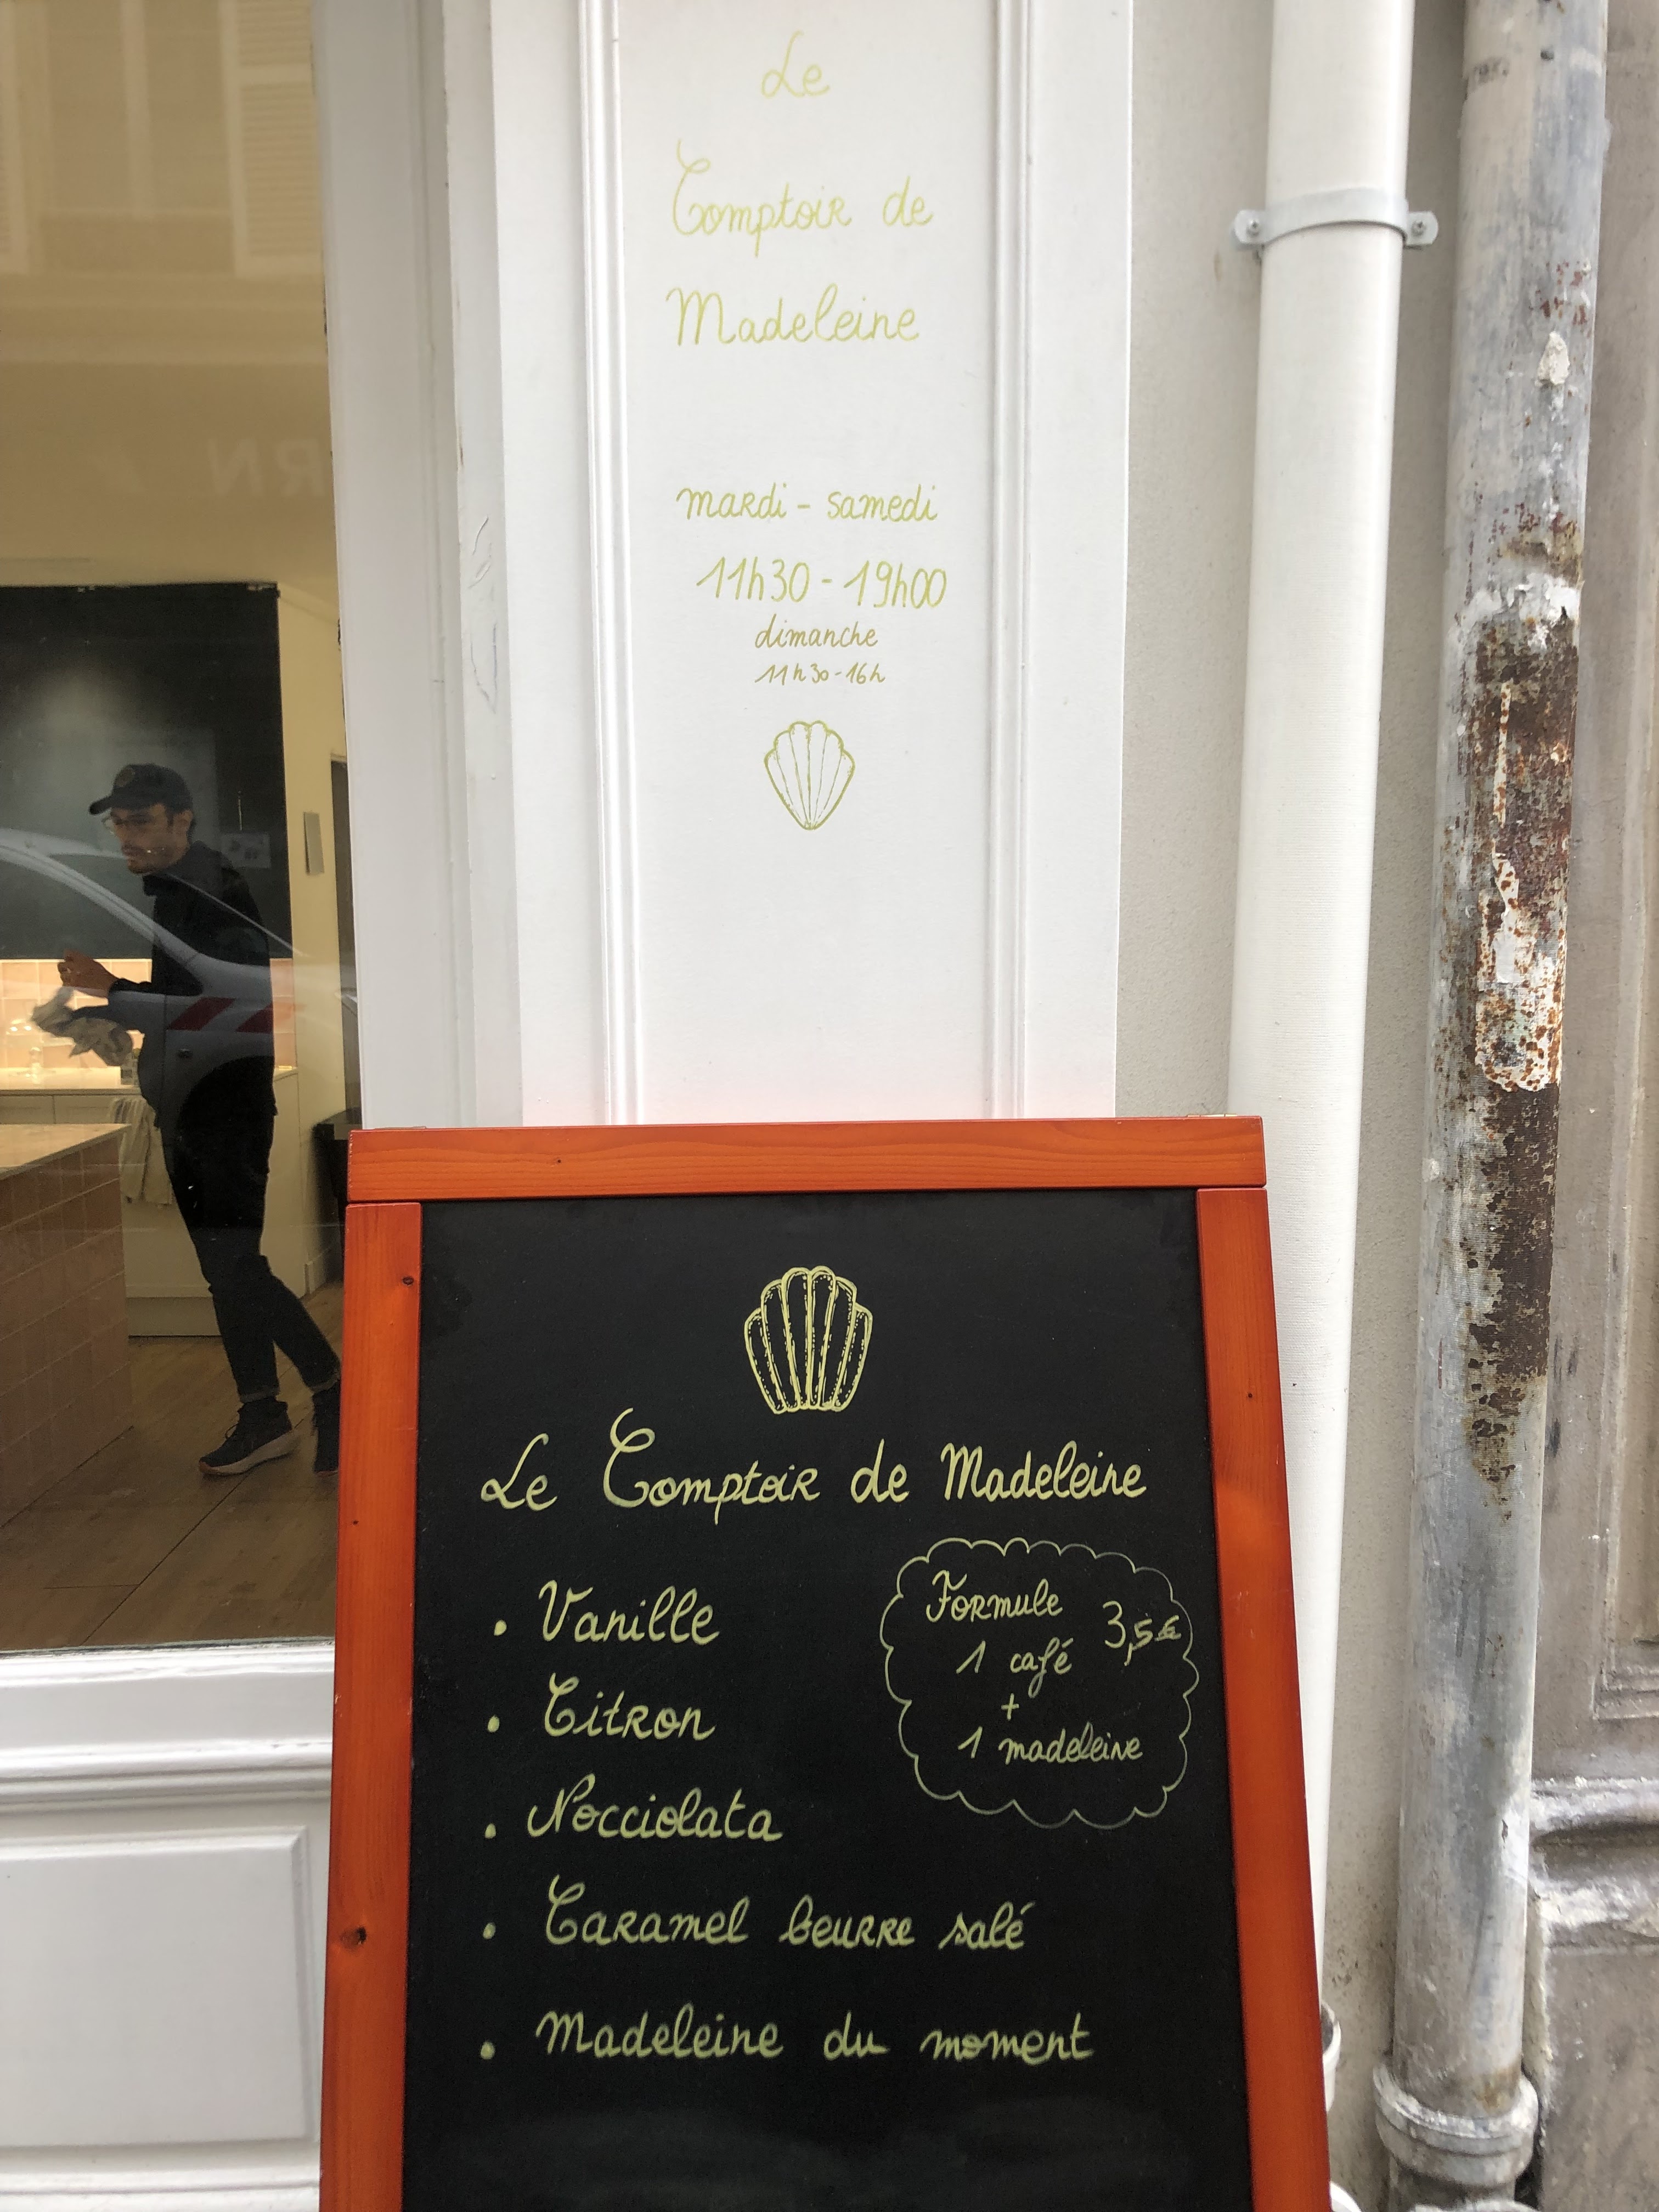 Le
Comptoir de
Madeleine
mardi - samedi
11h30 - 19h00
dimanche
11h30 - 16h
Le Comptoir de Madeleine
• Vanille
• Citron
• Nocciolata
• Caramel beurre salé
• Madeleine du moment
Formule 3,5€
1 café
+
1 madeleine